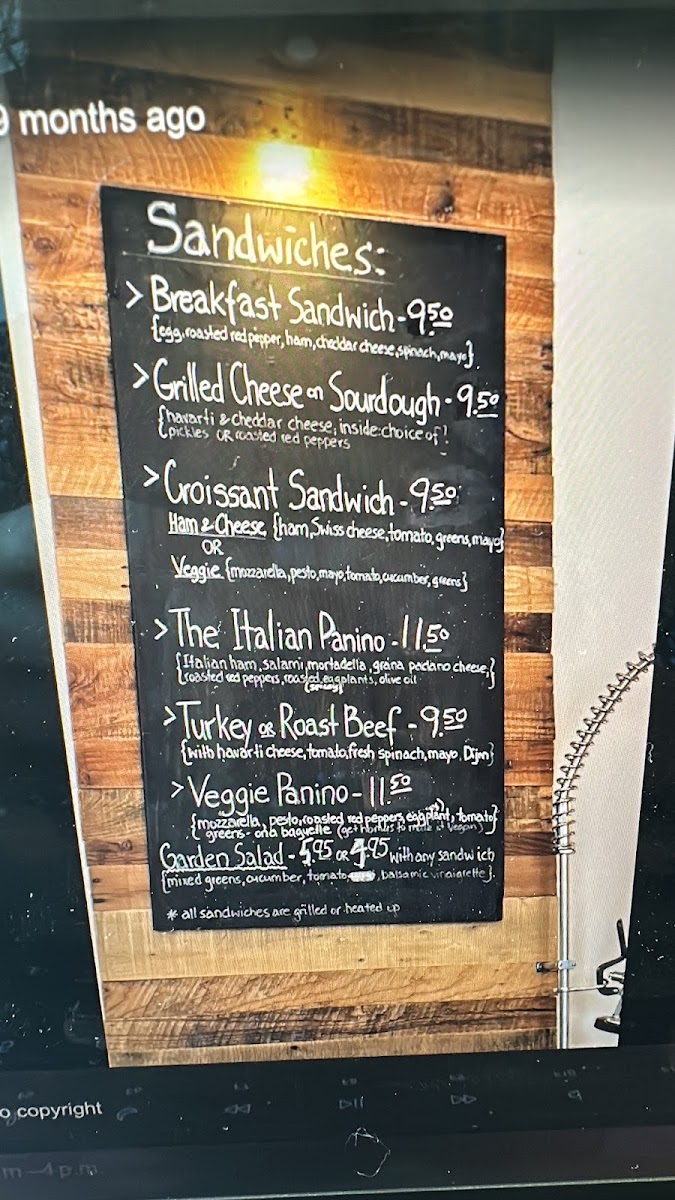 9 months ago
Sandwiches:
> Breakfast Sandwich - 9.50
{egg, roasted red pepper, ham, cheddar cheese, spinach, mayo}
> Grilled Cheese on Sourdough - 9.50
{havarti & cheddar cheese, inside: choice of!
pickles OR roasted red peppers
> Croissant Sandwich - 9.50
Ham & Cheese {ham, Swiss cheese, tomato, greens, mayo}
OR
Veggie {mozzarella, pesto, mayo, tomato, cucumber, greens}
> The Italian Panino - 11.50
{Italian ham, salami, mortadella, grana padano cheese,
roasted red peppers, roasted eggplants, olive oil}
(spicy)
> Turkey OR Roast Beef - 9.50
{with havarti cheese, tomato, fresh spinach, mayo, Dijon}
> Veggie Panino - 11.50
{mozzarella, pesto, roasted red peppers, eggplant, tomato,
greens - on a baguette (get hummus to make it vegan)}
Garden Salad - 5.95 OR 4.95 with any sandwich
{mixed greens, cucumber, tomato, balsamic vinaigrette}
* all sandwiches are grilled or heated up
o copyright
m – 4 p.m.